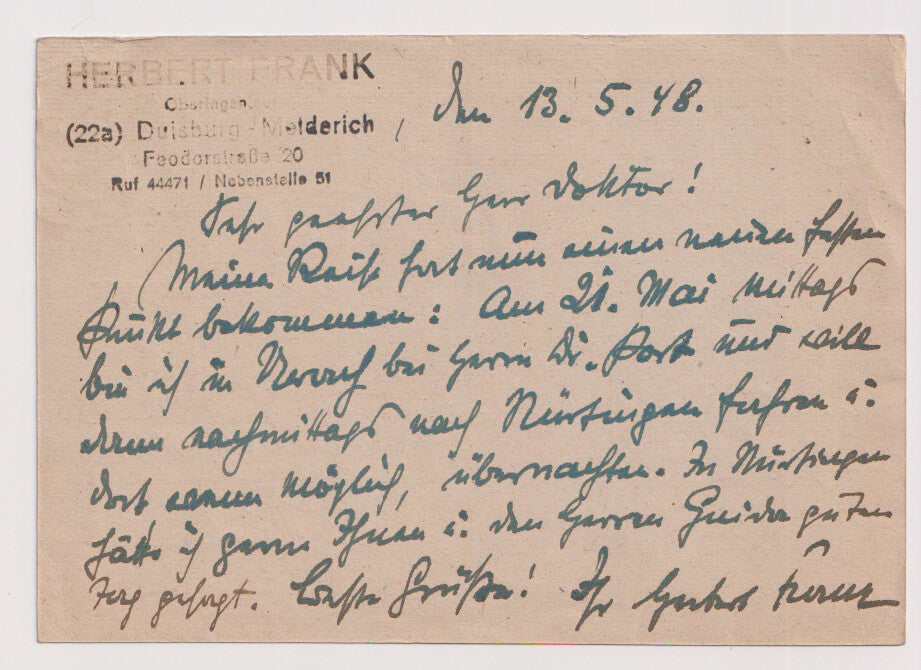 HERBERT FRANK
Oberingenieur
(22a) Duisburg-Meiderich
Feodorstraße 20
Ruf 44471 / Nebenstelle 51
, den 13. 5. 48.
Sehr geehrter Herr Doktor!
Meine Reise hat nun einen neuen festen
Punkt bekommen: Am 21. Mai mittags
bin ich in Urach bei Herrn Dr. und will
dann nachmittags nach Nürtingen fahren u.
dort wenn möglich, übernachten. In Nürtingen
hätte ich gerne Ihnen u. den Herren guten
Tag gesagt. Beste Grüße! Ihr Herbert Frank